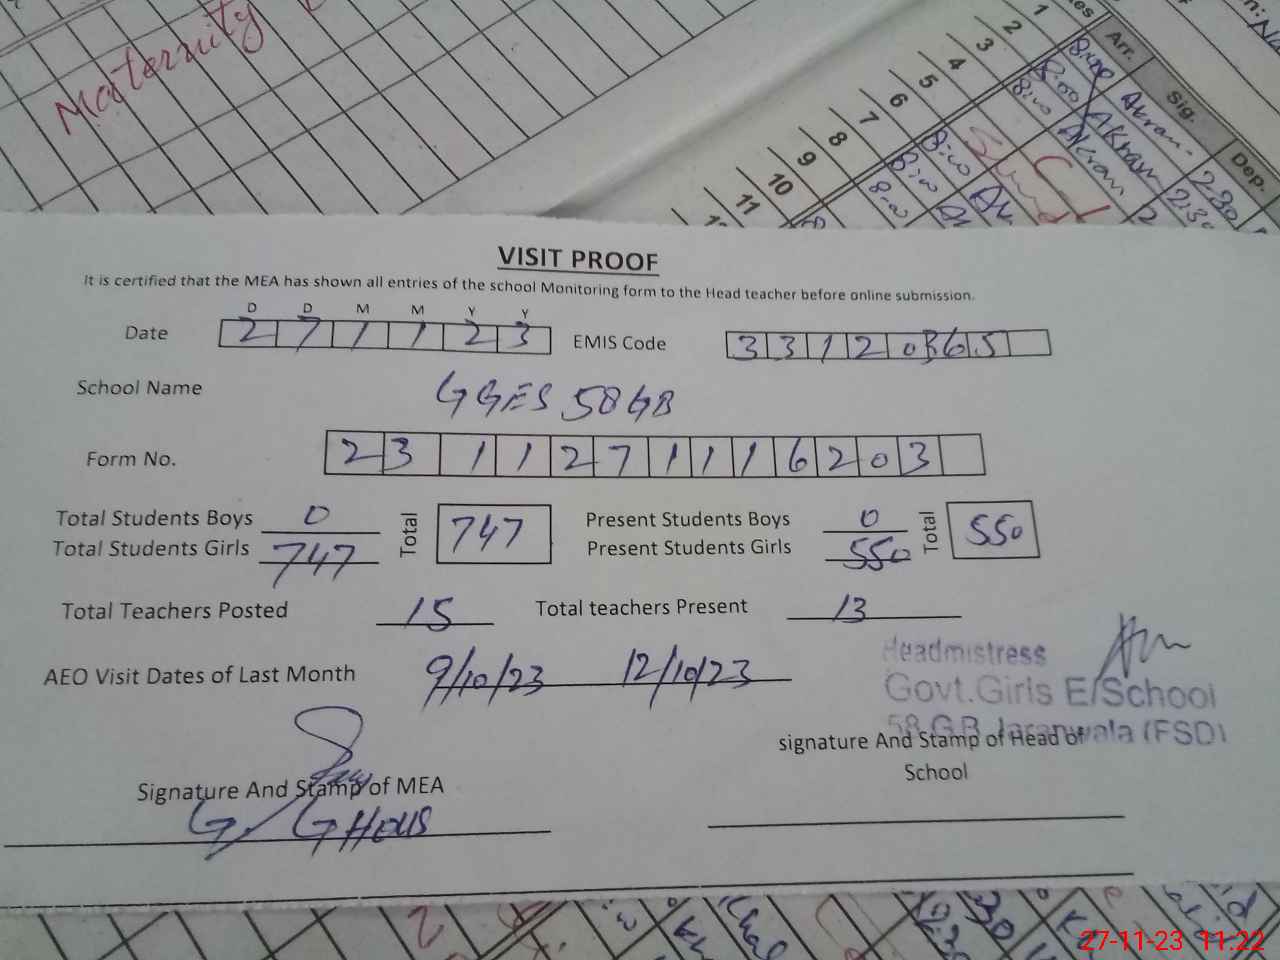 Maternity
1 2 3 4 5 6 7 8 9 10 11
Arr. Sig. Dep.
8:00 Akram 2:30
8:00 Akram 2:30
8:00 Akram
VISIT PROOF
It is certified that the MEA has shown all entries of the school Monitoring form to the Head teacher before online submission.
D D M M Y Y
Date 2 7 1 1 2 3 EMIS Code 3 3 1 2 0 3 6 5
School Name GGES 58 GB
Form No. 2 3 1 1 2 7 1 1 1 6 2 0 3
Total Students Boys 0 Total 747 Present Students Boys 0 Total 550
Total Students Girls 747 Present Students Girls 550
Total Teachers Posted 15 Total teachers Present 13
AEO Visit Dates of Last Month 9/10/23 12/10/23
Headmistress
Govt.Girls E/School
58 G.B Jaranwala (FSD)
signature And Stamp of Head of
School
Signature And Stamp of MEA
G. GHOUS
27-11-23 11:22